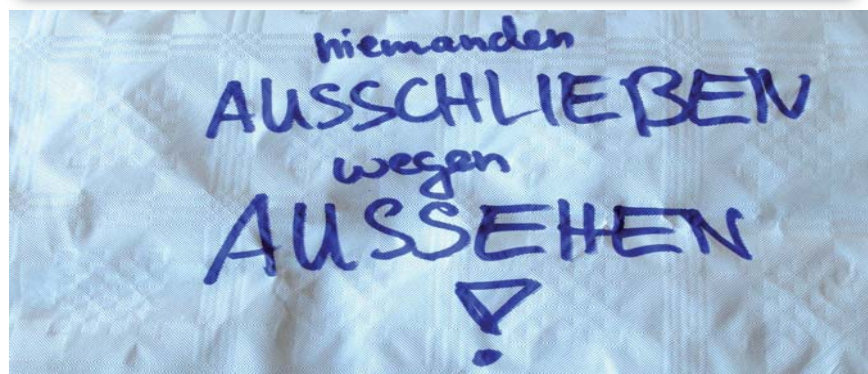 niemanden
AUSSCHLIEßEN
wegen
AUSSEHEN
!